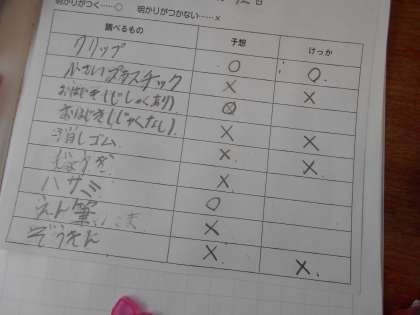 明かりがつく……○ 明かりがつかない……×
調べるもの 予想 けっか
クリップ ○ ○.
小さいプラスチック × ×
おはじき(じしゃくあり) ⊗
おはじき(じしゃくなし) × ×
消しゴム × ×
じょうぎ ×
ハサミ ○
えん筆 ×
ぞうきん × ×.